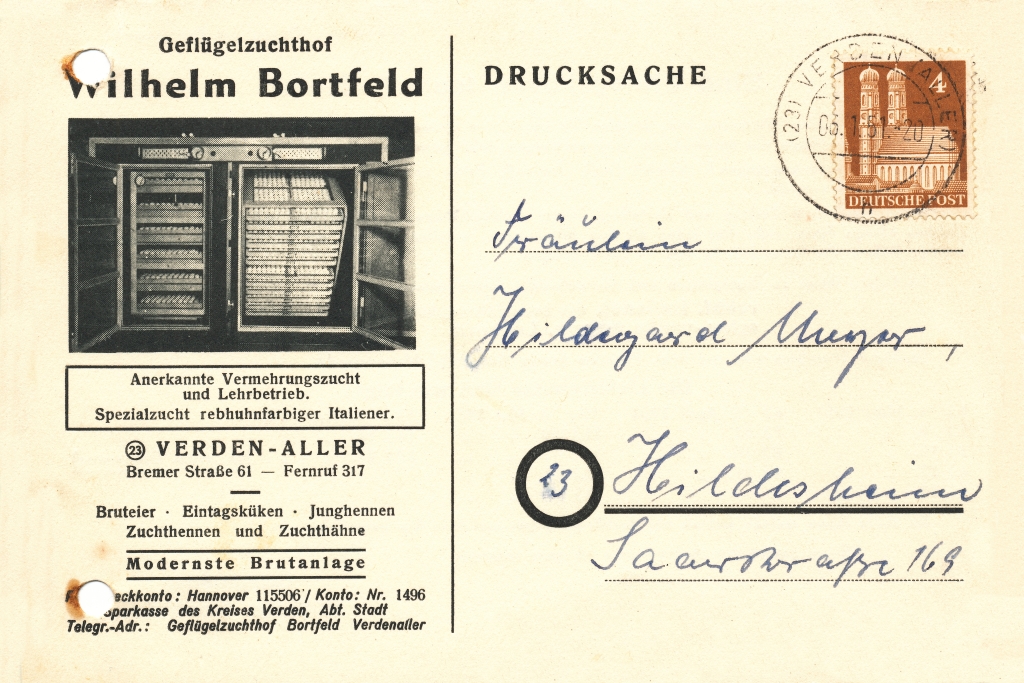 Geflügelzuchthof
Wilhelm Bortfeld
Anerkannte Vermehrungszucht
und Lehrbetrieb.
Spezialzucht rebhuhnfarbiger Italiener.
23 VERDEN-ALLER
Bremer Straße 61 — Fernruf 317
Bruteier · Eintagsküken · Junghennen
Zuchthennen und Zuchthähne
Modernste Brutanlage
eckkonto: Hannover 115506 / Konto: Nr. 1496
Sparkasse des Kreises Verden, Abt. Stadt
Telegr.-Adr.: Geflügelzuchthof Bortfeld Verdenaller
DRUCKSACHE
(23) VERDEN (ALLER)
4
DEUTSCHE POST
Fräulein
Hildegard Meyer,
23 Hildesheim
Saarstraße 169